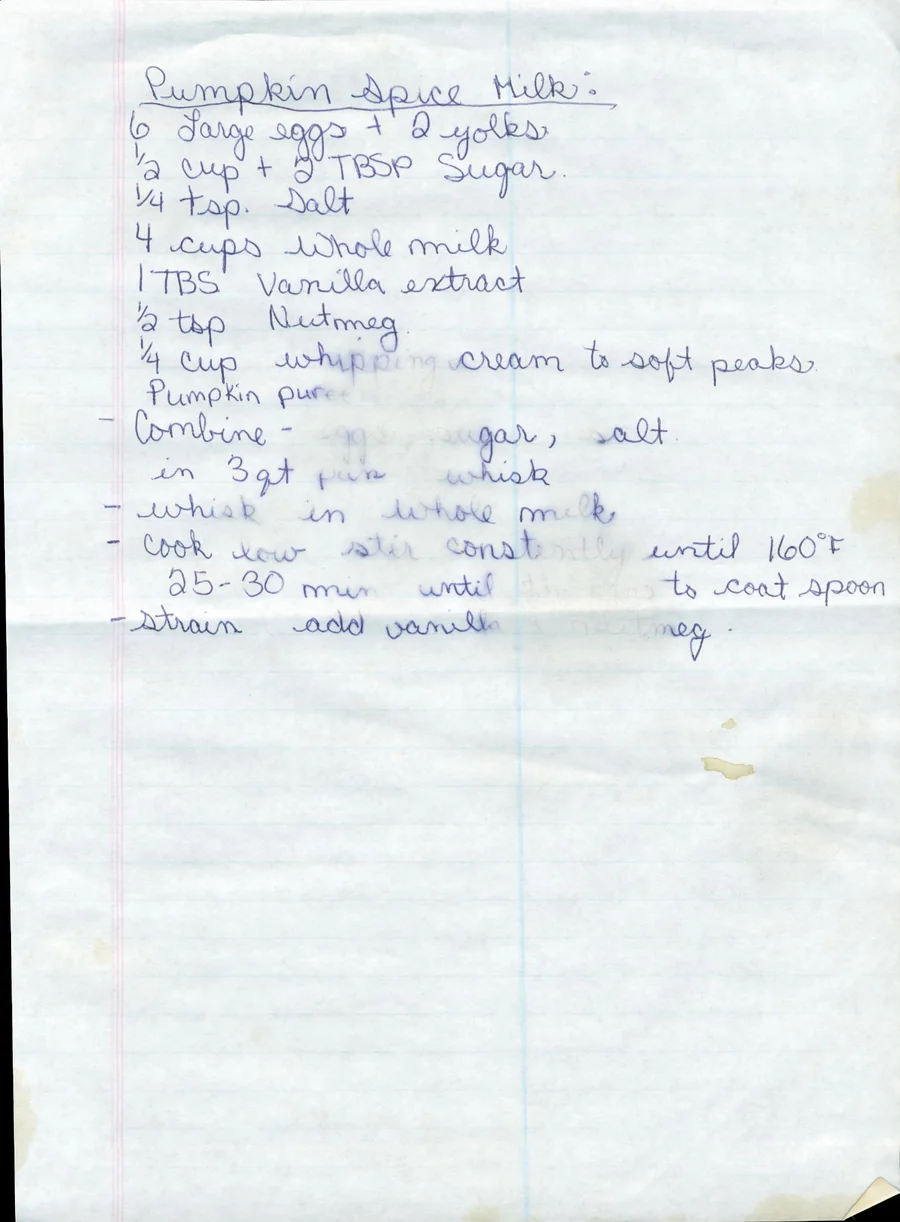 Pumpkin Spice Milk:
6 Large eggs + 2 yolks
1/2 cup + 2 TBSP Sugar.
1/4 tsp. Salt
4 cups whole milk
1 TBS Vanilla extract
1/2 tsp Nutmeg.
1/4 cup whipping cream to soft peaks.
Pumpkin puree
- Combine - eggs, sugar, salt.
in 3 qt pan whisk
- whisk in whole milk
- Cook low stir constantly until 160°F
25-30 min until to coat spoon
- strain add vanilla & nutmeg.